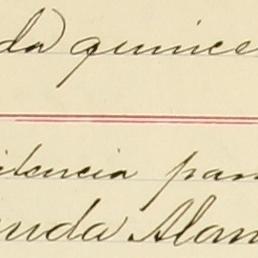 da quince
idencia para
inda Alam